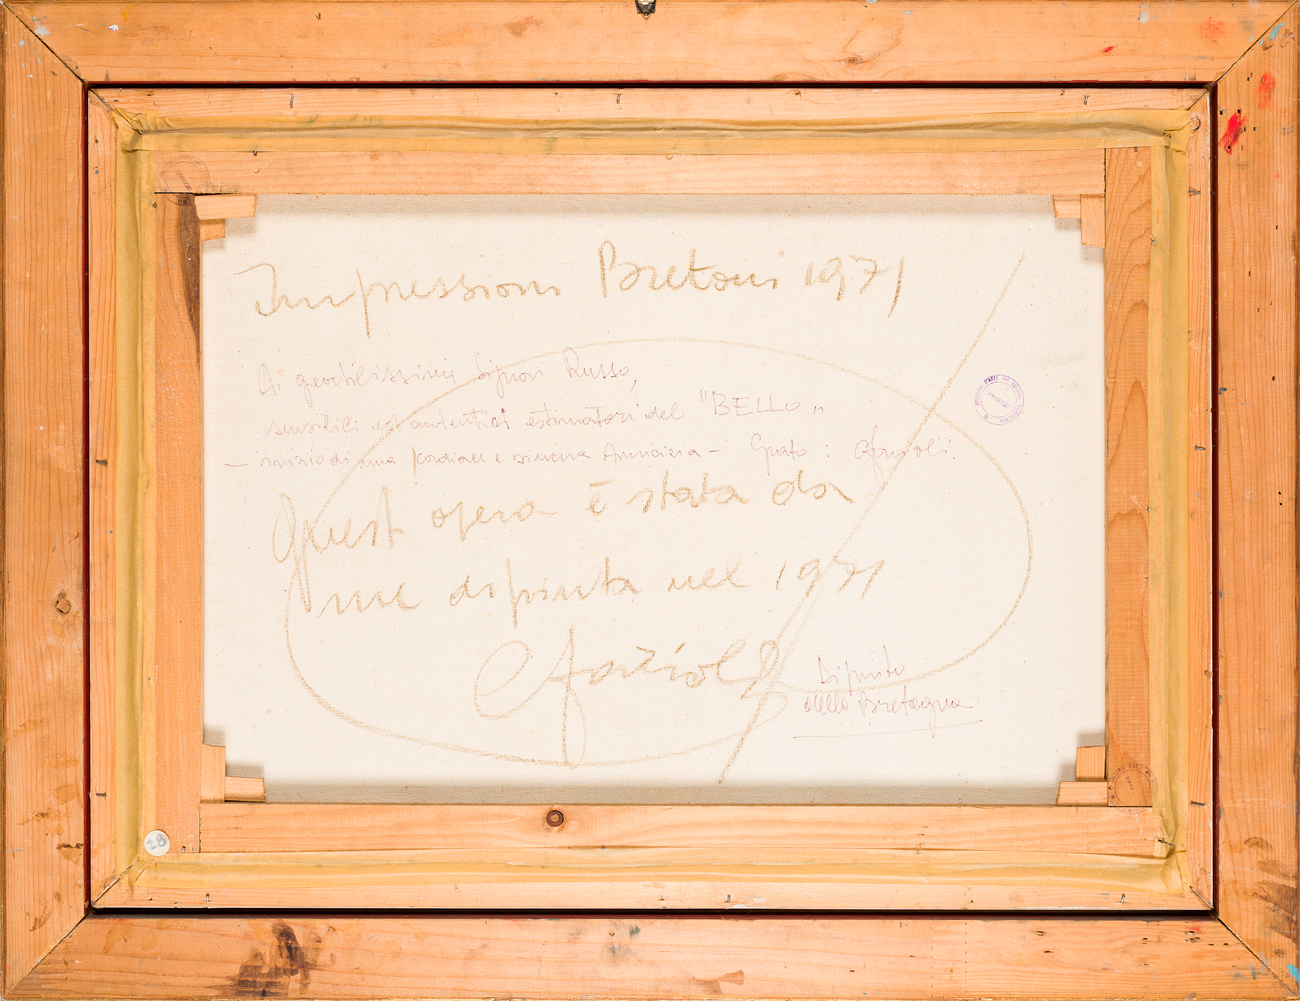 Impressioni Bretoni 1971
Ai gentilissimi Signori Russo,
sensibili ed autentici estimatori del "BELLO"
- inizio di una cordiale e sincera Amicizia - Grato: Cfazioli.
Quest opera è stata da
me dipinta nel 1971
Cfazioli
Dipinto
della Bretagna
28